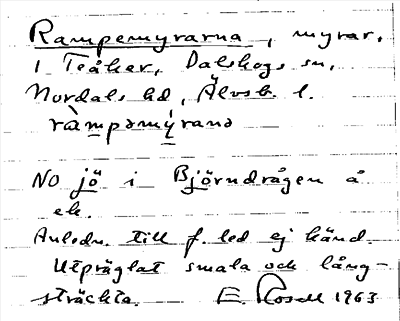 Rampemyrarna, myrar,
i Teåker, Dalskogs sn,
Nordals hd, Älvsb. l.
ràmpəmýrana
NO jö i Björndrågen å
ek.
Anledn. till f. led ej känd.
Utpräglat smala och lång-
sträckta. E. Rosell 1963